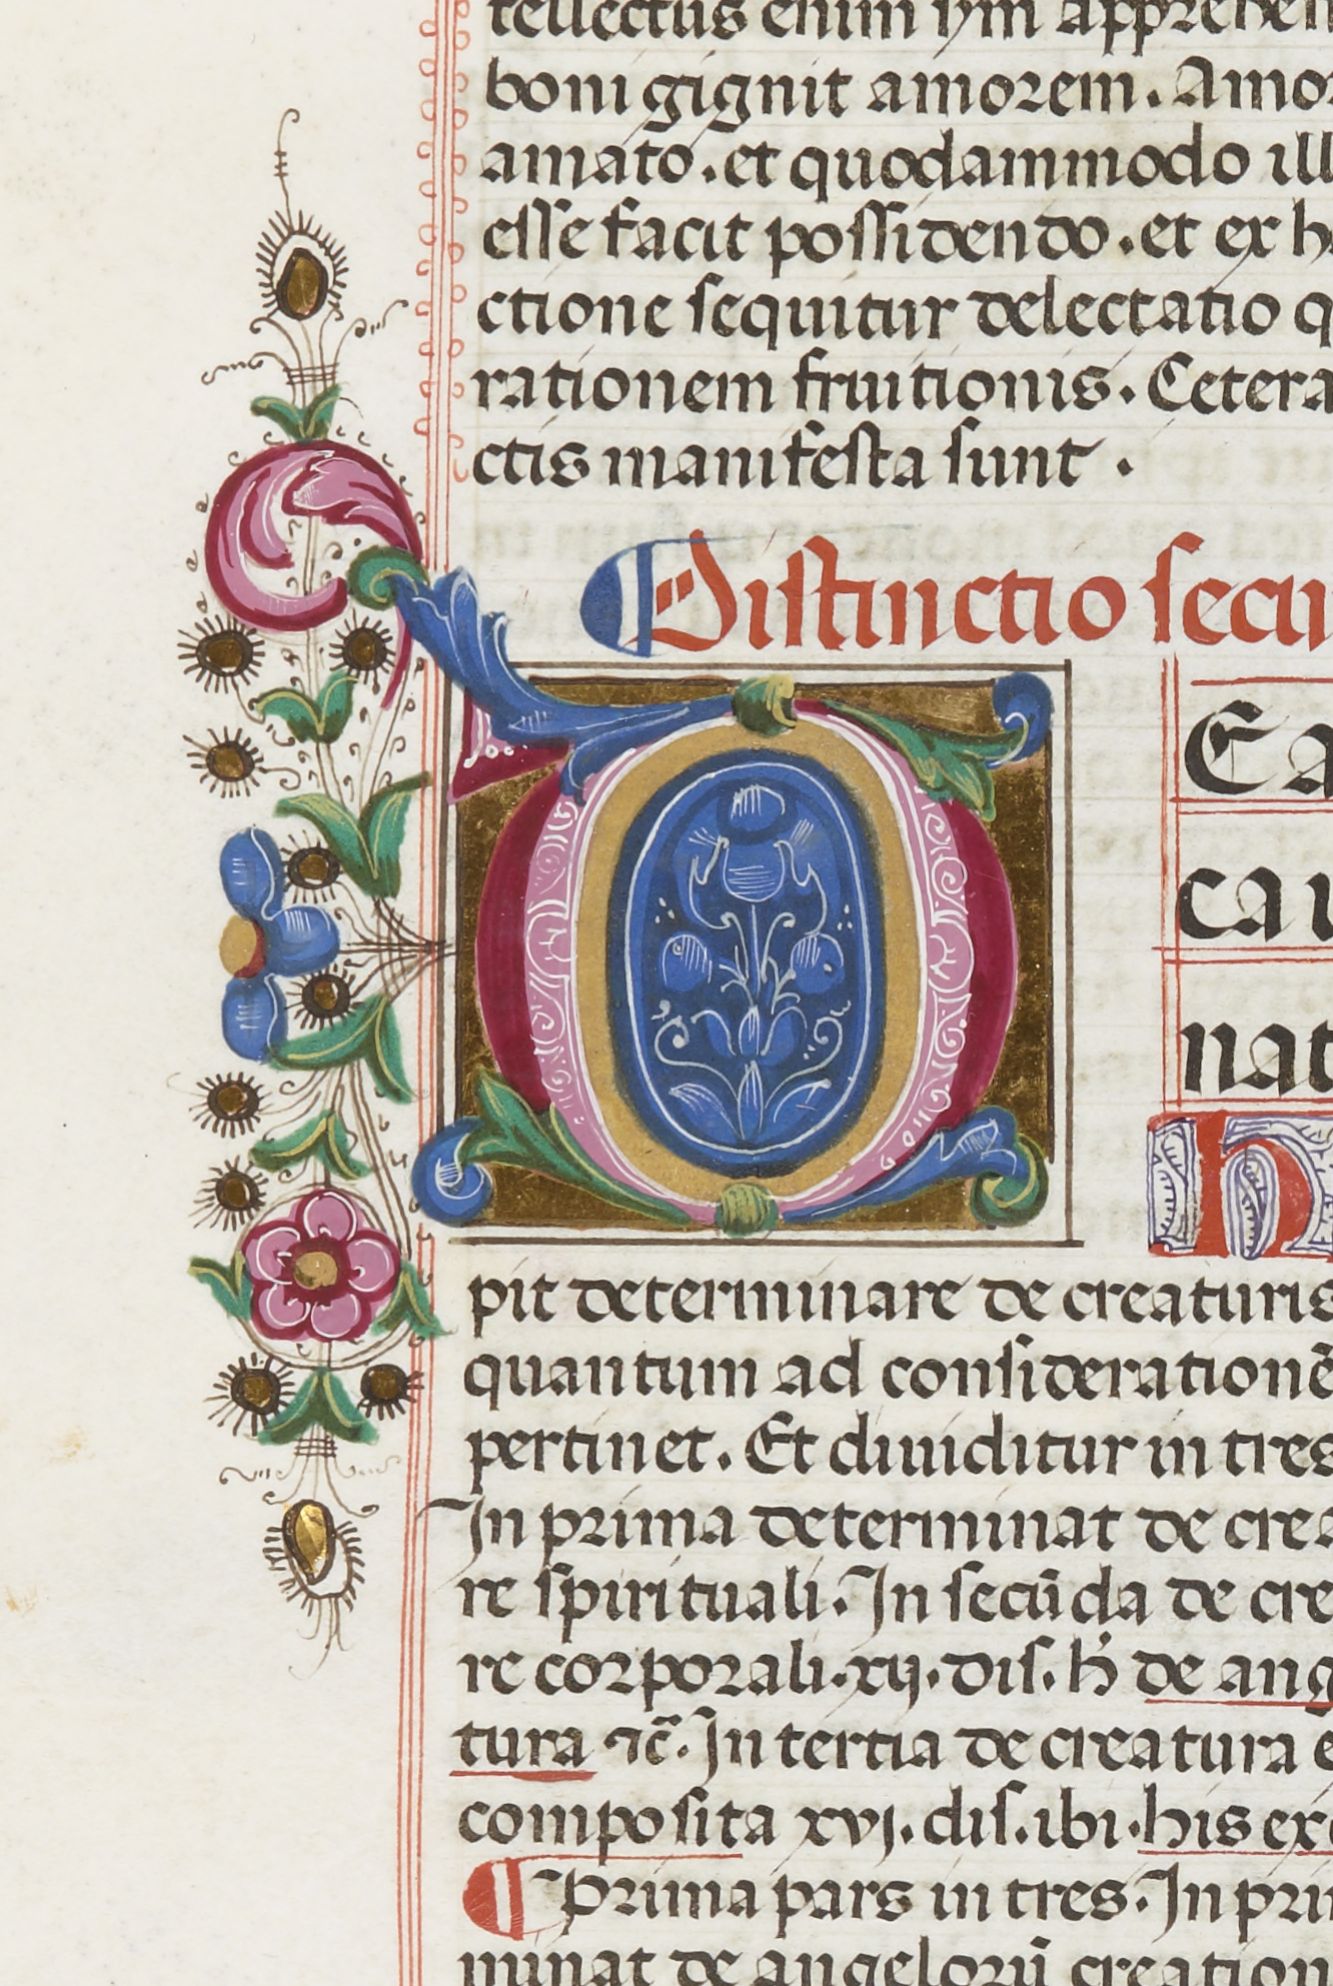 tellectus enim ipm apprehen
boni gignit amorem. Amor
amato. et quodammodo ill
esse facit possidendo. et ex h
ctione sequitur delectatio q
rationem fruitionis. Cetera
ctis manifesta sunt.
¶ Distinctio secu
D Ca
ca
nat
h
pit determinare de creaturis
quantum ad considerationē
pertinet. Et diuiditur in tres
In prima determinat de crea
re spirituali. In secūda de cre
re corporali. xij. dis. h̓ de ang
tura ⁊c̄. In tertia de creatura
composita xvj. dis. ibi. his ex
¶ Prima pars in tres. In pri
minat de angelorū creation